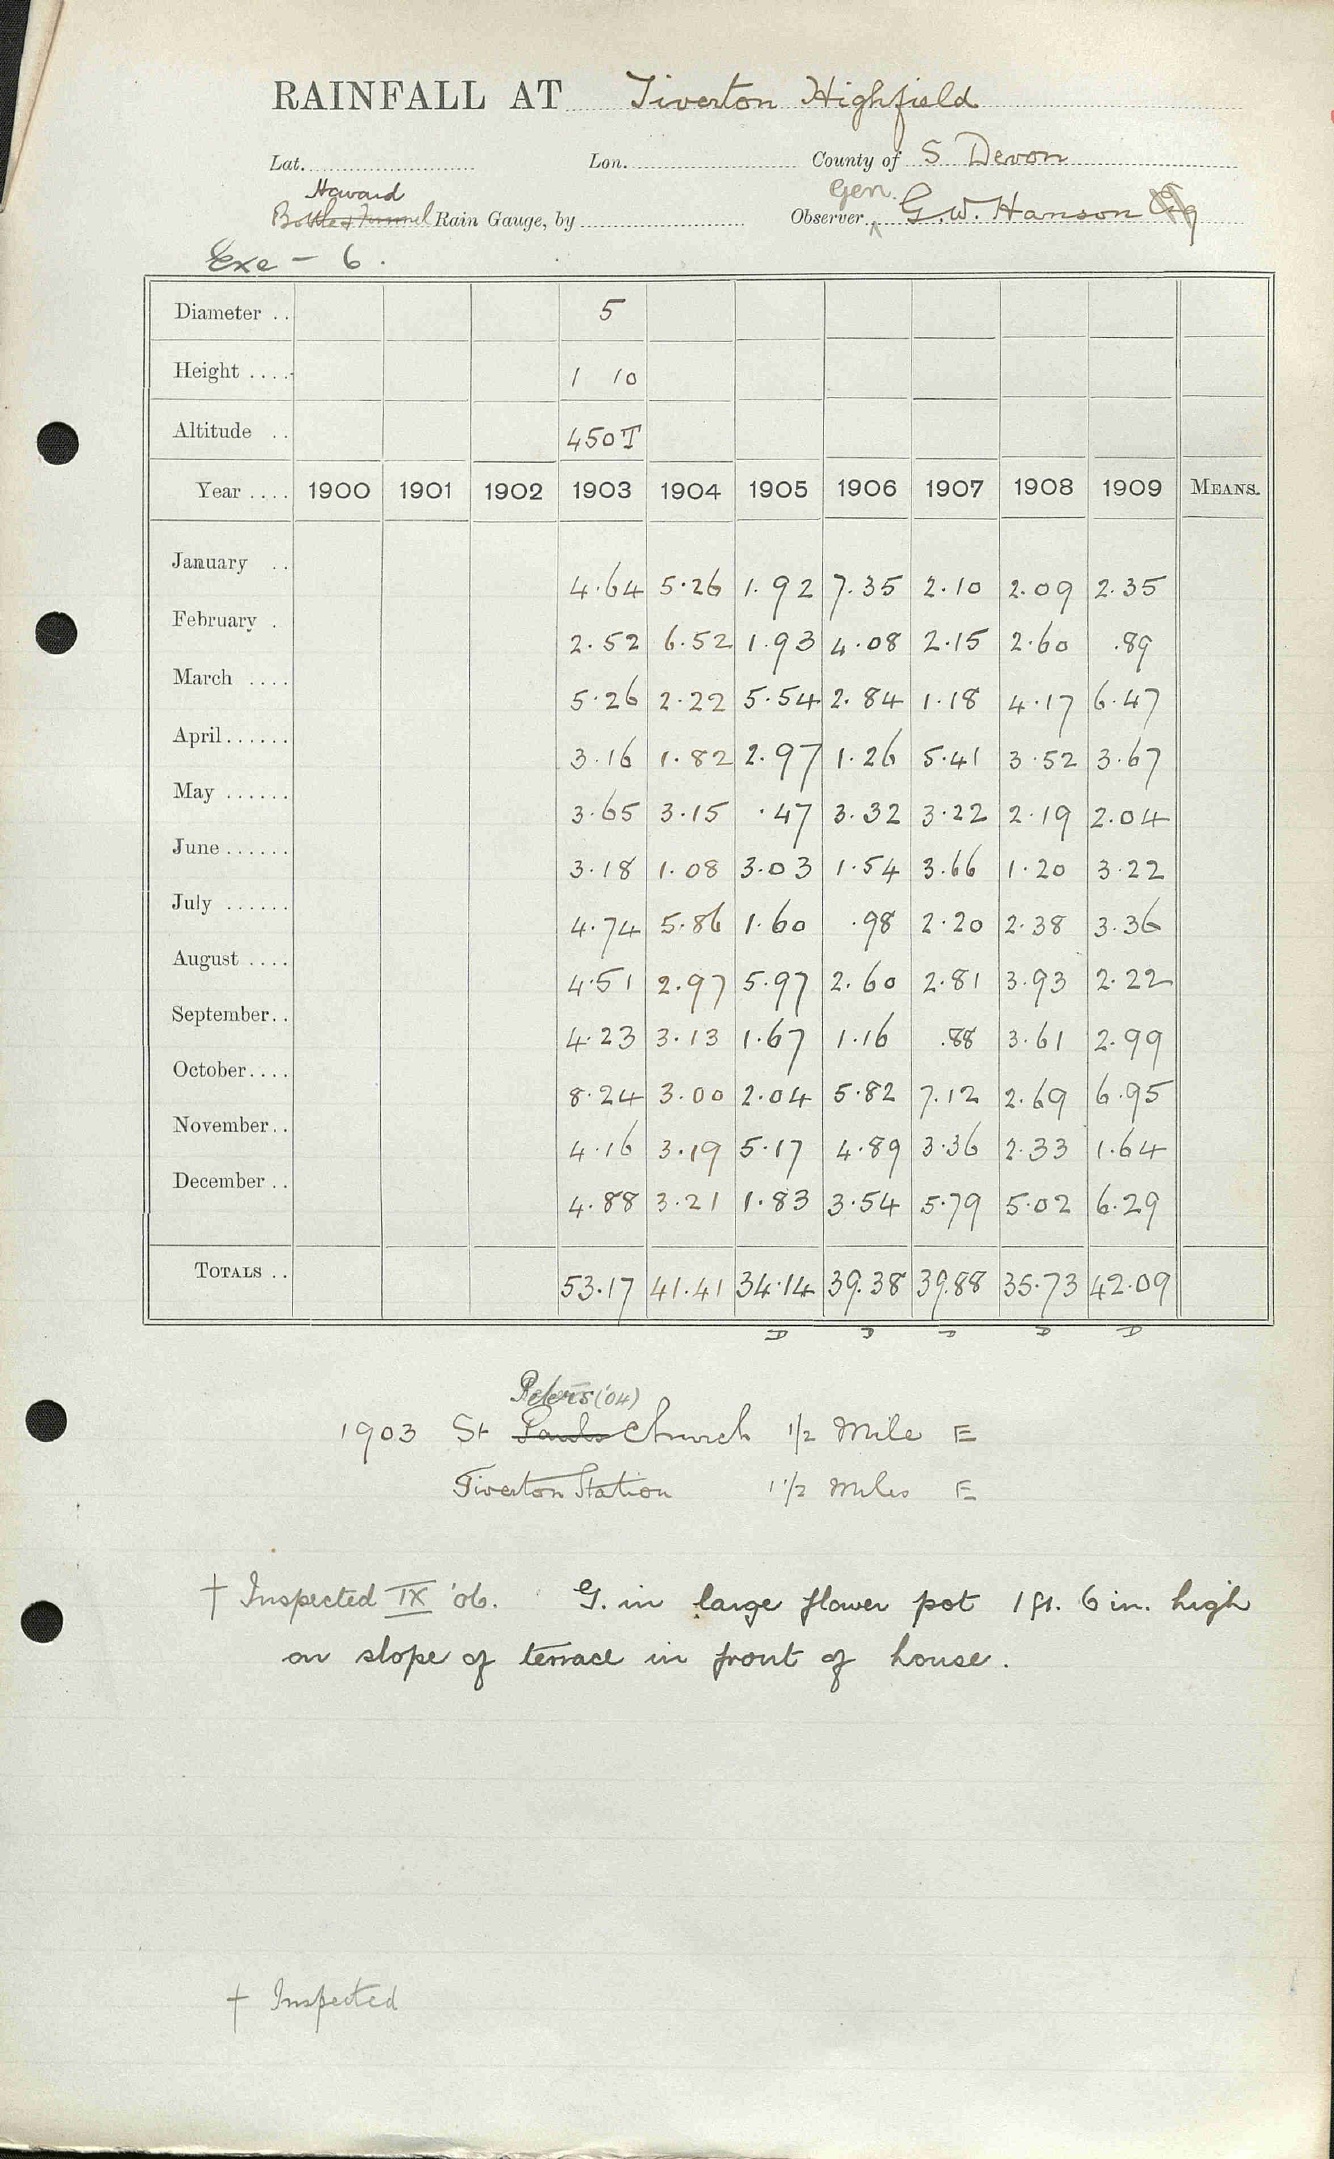 RAINFALL AT Tiverton Highfield
Lat. Lon. County of S. Devon
Howard Gen.
Bottle & Funnel Rain Gauge, by Observer G.W. Hanson Esq
Exe - 6.
Diameter .. 5
Height .... 1 10
Altitude .. 450T
Year .... 1900 1901 1902 1903 1904 1905 1906 1907 1908 1909 MEANS.
January .. 4.64 5.26 1.92 7.35 2.10 2.09 2.35
February . 2.52 6.52 1.93 4.08 2.15 2.60 .89
March .... 5.26 2.22 5.54 2.84 1.18 4.17 6.47
April...... 3.16 1.82 2.97 1.26 5.41 3.52 3.67
May ...... 3.65 3.15 .47 3.32 3.22 2.19 2.04
June ...... 3.18 1.08 3.03 1.54 3.66 1.20 3.22
July ...... 4.74 5.86 1.60 .98 2.20 2.38 3.36
August .... 4.51 2.97 5.97 2.60 2.81 3.93 2.22
September.. 4.23 3.13 1.67 1.16 .88 3.61 2.99
October.... 8.24 3.00 2.04 5.82 7.12 2.69 6.95
November.. 4.16 3.19 5.17 4.89 3.36 2.33 1.64
December .. 4.88 3.21 1.83 3.54 5.79 5.02 6.29
TOTALS .. 53.17 41.41 34.14 39.38 39.88 35.73 42.09
D D D D D
Peters ('04)
1903 St Pauls Church 1/2 Mile E
Tiverton Station 1 1/2 Miles E
† Inspected IX '06. G. in large flower pot 1 ft. 6 in. high
on slope of terrace in front of house.
† Inspected